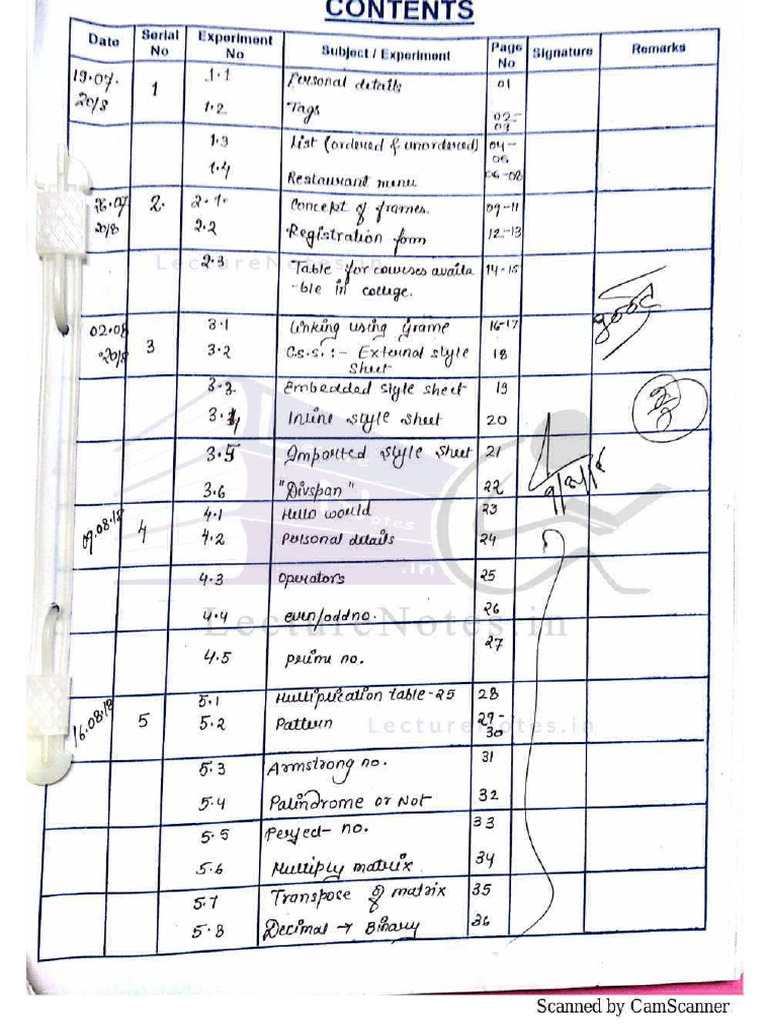 CONTENTS
Date Serial No Experiment No Subject / Experiment Page No Signature Remarks
19.07.2018 1 1.1 Personal details 01
1.2 Tags 02-03
1.3 List (ordered & unordered) 04-05
1.4 Restaurant menu 06-08
26.07 2018 2. 2.1. Concept of frames. 09-11
2.2 Registration form 12-13
LectureNotes.in
2.3 Table for courses availa 14-15
-ble in college.
02.08 2018 3 3.1 Linking using frame 16-17
good
3.2 C.S.S. :- External style 18
Sheet
3.3 Embedded style sheet 19
3.4 Inline style sheet 20
3.5 Imported style sheet 21
3.6 "Divspan" 22
09.08.18 4 4.1 Hello world 23
4.2 Personal details 24
4.3 Operators 25
4.4 even/odd no. 26
LectureNotes.in
4.5 prime no. 27
16.08.18 5 5.1 Multiplication table-25 28
5.2 Pattern 29-30
LectureNotes.in
5.3 Armstrong no. 31
5.4 Palindrome or Not 32
5.5 Perfect no. 33
5.6 Multiply matrix 34
5.7 Transpose of matrix 35
5.8 Decimal → Binary 36
Scanned by CamScanner